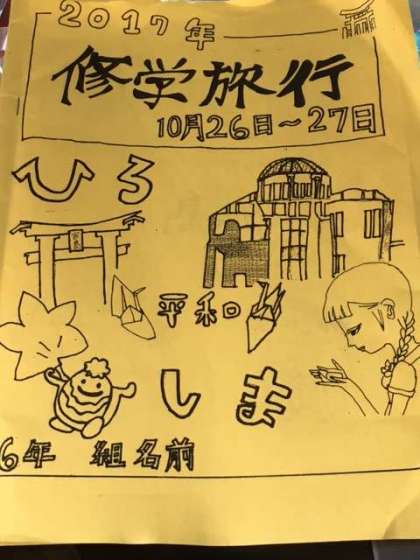 2017年
修学旅行
10月26日〜27日
ひろ
平和
しま
6年 組名前